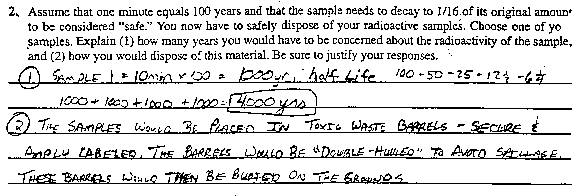 2. Assume that one minute equals 100 years and that the sample needs to decay to 1/16 of its original amount
to be considered "safe." You now have to safely dispose of your radioactive samples. Choose one of yo
samples. Explain (1) how many years you would have to be concerned about the radioactivity of the sample,
and (2) how you would dispose of this material. Be sure to justify your responses.
① SAMPLE 1 = 10min x 100 = 1000yr. half life 100-50-25-12½-6¼
1000+1000+1000+1000=4000 yrs
② THE SAMPLES WOULD BE PLACED IN TOXIC WASTE BARRELS - SECURE &
AMPLY LABELED. THE BARRELS WOULD BE "DOUBLE-HULLED" TO AVOID SPILLAGE.
THESE BARRELS WOULD THEN BE BURIED ON THE GROUNDS